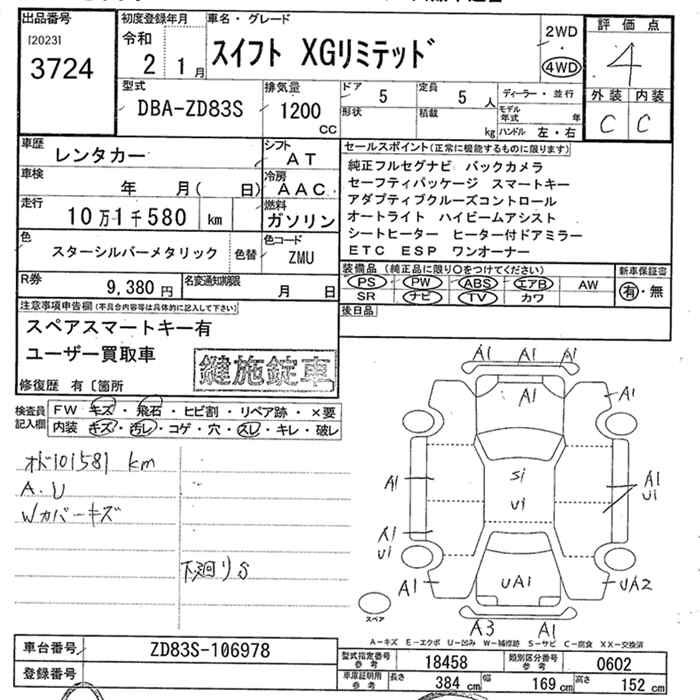 出品番号
[2023]
3724
初度登録年月
令和
2 1月
車名・グレード
スイフト XGリミテッド
2WD
4WD
評価点
4
外装 内装
C C
型式
DBA-ZD83S
排気量
1200
cc
ドア 5
形状
定員 5 人
積載 kg
ディーラー・並行
モデル年式 年
ハンドル 左・右
車歴
レンタカー
シフト
AT
車検 年 月( 日)
冷房
AAC
走行
10万1千580 km
燃料
ガソリン
色
スターシルバーメタリック
色替
色コード
ZMU
R券
9,380円
名変通知期限
月 日
セールスポイント(正常に機能するものに限ります)
純正フルセグナビ バックカメラ
セーフティパッケージ スマートキー
アダプティブクルーズコントロール
オートライト ハイビームアシスト
シートヒーター ヒーター付ドアミラー
ETC ESP ワンオーナー
装備品(純正品に限り○をつけてください)
PS PW ABS エアB AW
SR ナビ TV カワ
新車保証書
有・無
後日品
注意事項申告欄(不具合内容等は具体的に記入して下さい)
スペアスマートキー有
ユーザー買取車
鍵施錠車
修復歴 有〔箇所
検査員記入欄
FW キズ・飛石・ヒビ割・リペア跡・×要
内装 キズ・汚レ・コゲ・穴・スレ・キレ・破レ
オド101581 km
A.U
Wカバーキズ
下廻りS
A1 A1 A1
A1 A1
A1 S1 U1 A1 U1
A1 U1
A1 UA1 UA2
A3 A1
スペア
A-キズ E-エクボ U-凹み W-補修跡 S-サビ C-腐食 XX-交換済
車台番号
ZD83S-106978
登録番号
型式指定番号 参考 18458
類別区分番号 参考 0602
車庫証明用 参考 長さ 384 cm 幅 169 cm 高さ 152 cm